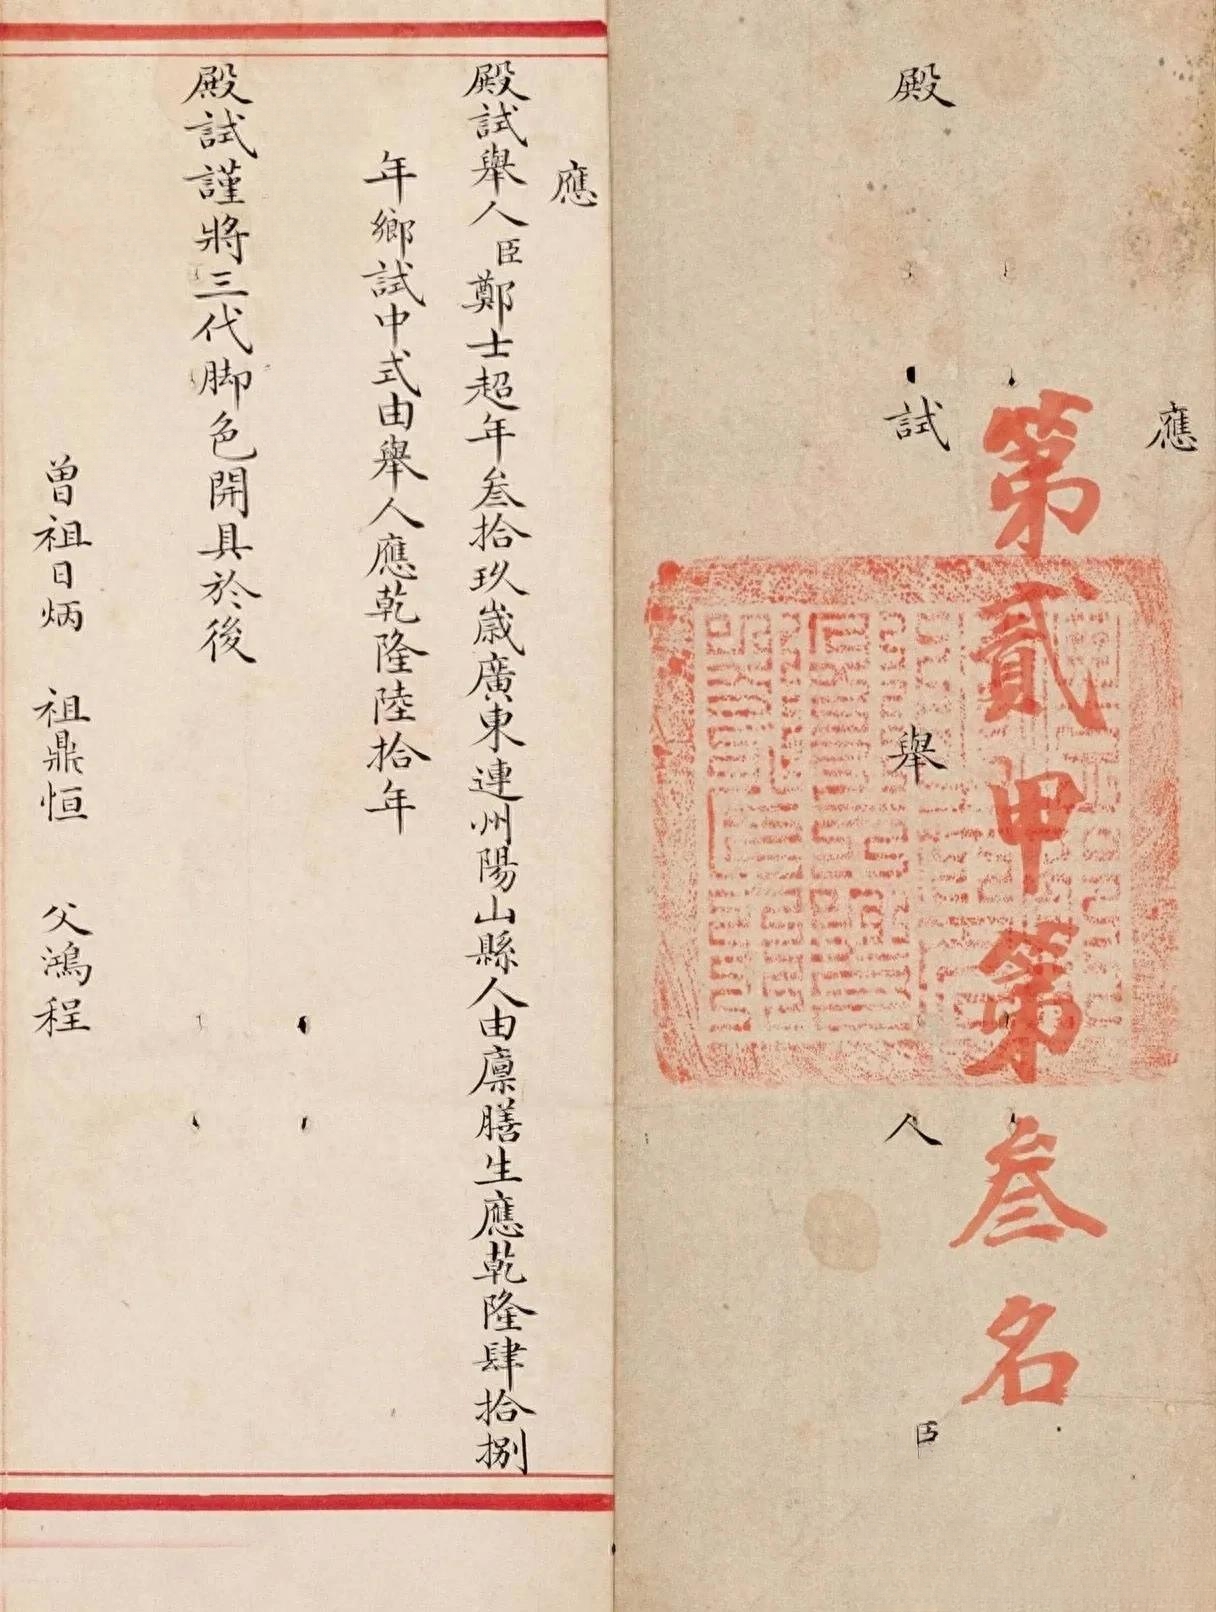 應
第貳甲第叁名
殿試舉人臣
應
殿試舉人臣鄭士超年叁拾玖歲廣東連州陽山縣人由廩膳生應乾隆肆拾捌
年鄉試中式由舉人應乾隆陸拾年
殿試謹將三代脚色開具於後
曾祖日炳 祖鼎恒 父鴻程